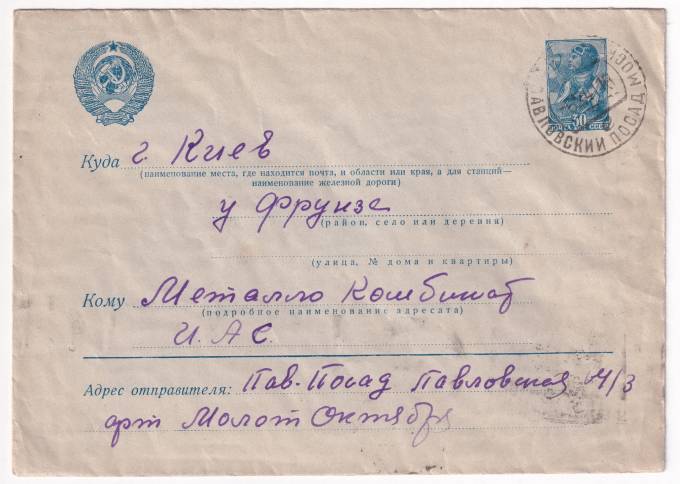 30
ПАВЛОВСКИЙ ПОСАД МОСК
Куда г. Киев
(наименование места, где находится почта, и области или края, а для станций—
наименование железной дороги)
у Фрунзе
(район, село или деревня)
(улица, № дома и квартиры)
Кому Металло Комбинат
(подробное наименование адресата)
И. А С.
Адрес отправителя: Пав-Посад Павловская 64/3
арт Молот Октября